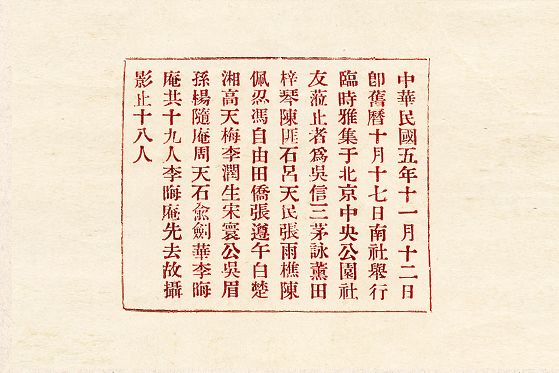 中華民國五年十一月十二日
卽舊曆十月十七日南社舉行
臨時雅集于北京中央公園社
友蒞止者爲吳信三茅詠薰田
梓琴陳匪石呂天民張雨樵陳
佩忍馮自由田僑張遵午白楚
湘高天梅李潤生宋寰公吳眉
孫楊隨庵周天石兪劍華李晦
庵共十九人李晦庵先去故攝
影止十八人